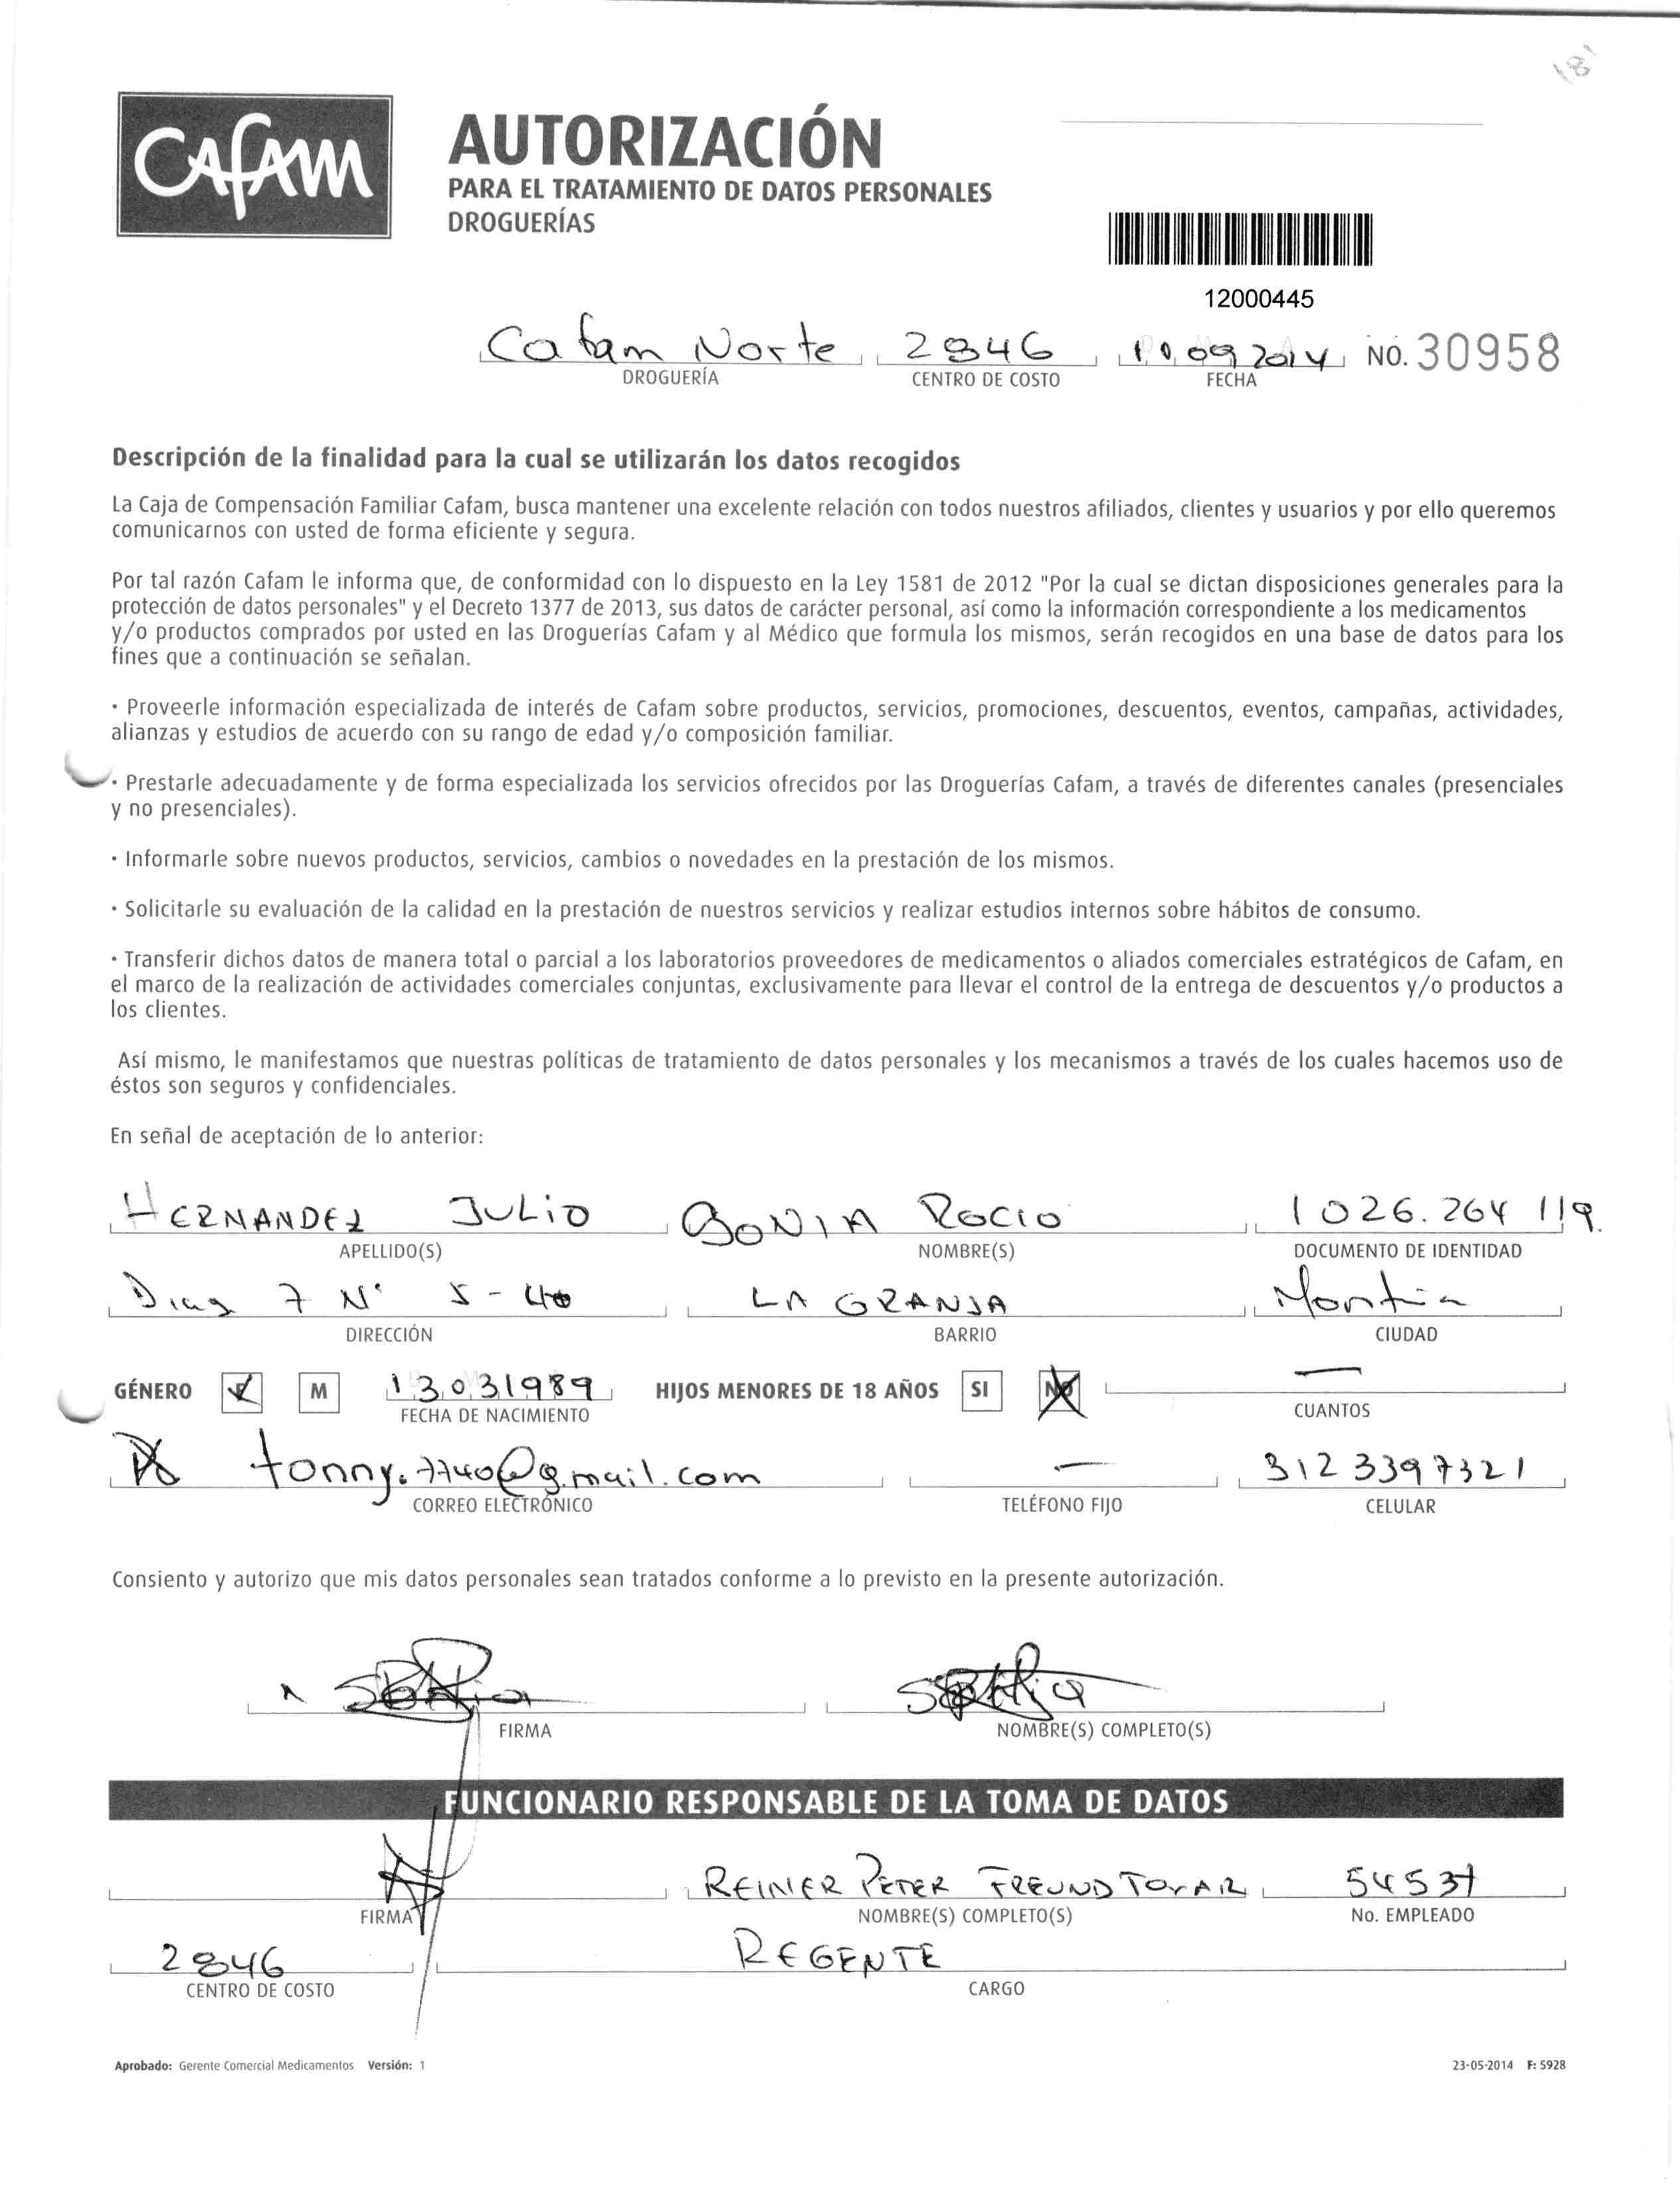 181
Cafam
AUTORIZACIÓN
PARA EL TRATAMIENTO DE DATOS PERSONALES
DROGUERÍAS
12000445
Cafam Norte 2846 10 09 2014 NO. 30958
DROGUERÍA CENTRO DE COSTO FECHA
Descripción de la finalidad para la cual se utilizarán los datos recogidos
La Caja de Compensación Familiar Cafam, busca mantener una excelente relación con todos nuestros afiliados, clientes y usuarios y por ello queremos
comunicarnos con usted de forma eficiente y segura.
Por tal razón Cafam le informa que, de conformidad con lo dispuesto en la Ley 1581 de 2012 "Por la cual se dictan disposiciones generales para la
protección de datos personales" y el Decreto 1377 de 2013, sus datos de carácter personal, así como la información correspondiente a los medicamentos
y/o productos comprados por usted en las Droguerías Cafam y al Médico que formula los mismos, serán recogidos en una base de datos para los
fines que a continuación se señalan.
· Proveerle información especializada de interés de Cafam sobre productos, servicios, promociones, descuentos, eventos, campañas, actividades,
alianzas y estudios de acuerdo con su rango de edad y/o composición familiar.
· Prestarle adecuadamente y de forma especializada los servicios ofrecidos por las Droguerías Cafam, a través de diferentes canales (presenciales
y no presenciales).
· Informarle sobre nuevos productos, servicios, cambios o novedades en la prestación de los mismos.
· Solicitarle su evaluación de la calidad en la prestación de nuestros servicios y realizar estudios internos sobre hábitos de consumo.
· Transferir dichos datos de manera total o parcial a los laboratorios proveedores de medicamentos o aliados comerciales estratégicos de Cafam, en
el marco de la realización de actividades comerciales conjuntas, exclusivamente para llevar el control de la entrega de descuentos y/o productos a
los clientes.
Así mismo, le manifestamos que nuestras políticas de tratamiento de datos personales y los mecanismos a través de los cuales hacemos uso de
éstos son seguros y confidenciales.
En señal de aceptación de lo anterior:
HERNANDEZ JULIO SONIA ROCIO 1026.264 119.
APELLIDO(S) NOMBRE(S) DOCUMENTO DE IDENTIDAD
Diag 7 N° 5 - 40 LA GRANJA
DIRECCIÓN BARRIO CIUDAD
GÉNERO F M 13031989 HIJOS MENORES DE 18 AÑOS SI NO —
FECHA DE NACIMIENTO CUANTOS
tonny.7740@gmail.com — 312 3397321
CORREO ELECTRÓNICO TELÉFONO FIJO CELULAR
Consiento y autorizo que mis datos personales sean tratados conforme a lo previsto en la presente autorización.
FIRMA NOMBRE(S) COMPLETO(S)
FUNCIONARIO RESPONSABLE DE LA TOMA DE DATOS
REINER PETER FREUND TOVAR 54537
FIRMA NOMBRE(S) COMPLETO(S) No. EMPLEADO
2846 REGENTE
CENTRO DE COSTO CARGO
Aprobado: Gerente Comercial Medicamentos Versión: 1 23-05-2014 F: 5928